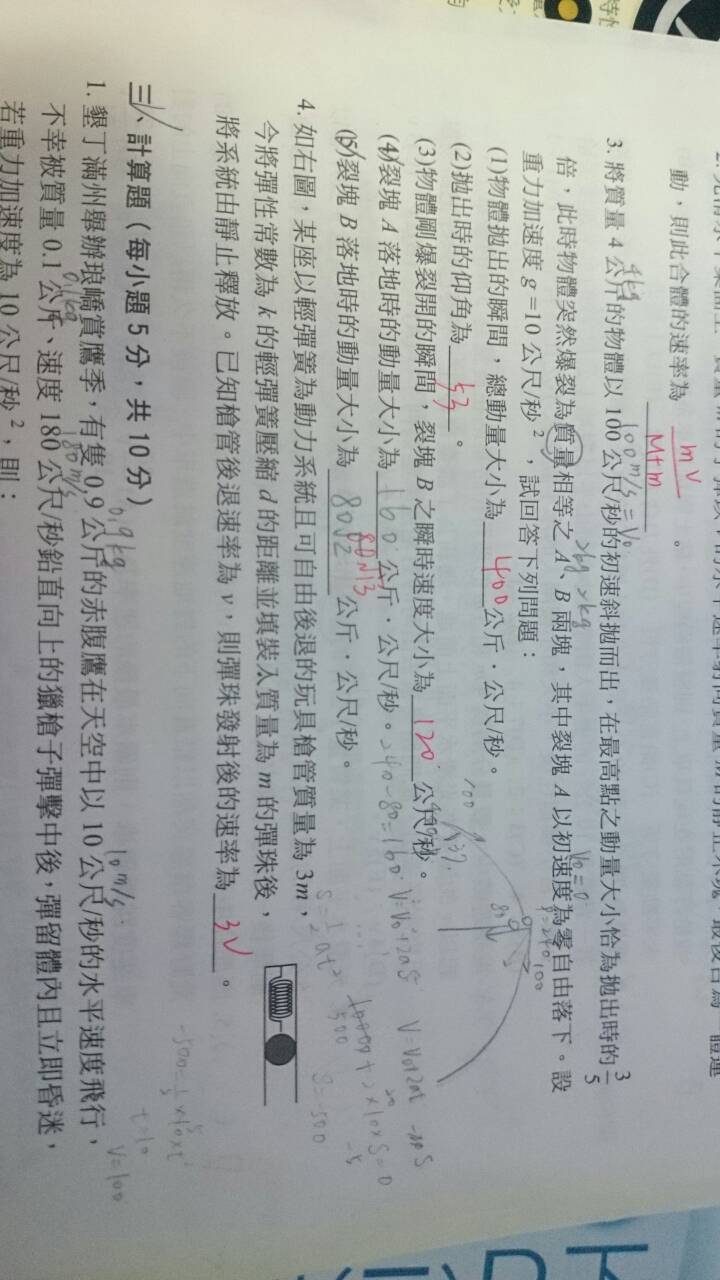 動，則此合體的速率為 mv/M+m 。
3. 將質量 4 公斤的物體以 100 公尺/秒的初速斜拋而出，在最高點之動量大小恰為拋出時的 3/5
4kg 100m/s=V₀
倍，此時物體突然爆裂為質量相等之 A、B 兩塊，其中裂塊 A 以初速度為零自由落下。設
2kg 2kg V₀=0
重力加速度 g =10 公尺/秒²，試回答下列問題：
P=240
(1)物體拋出的瞬間，總動量大小為 400 公斤．公尺/秒。
(2)拋出時的仰角為 53 。
(3)物體剛爆裂開的瞬間，裂塊 B 之瞬時速度大小為 120 公尺/秒。
(4)裂塊 A 落地時的動量大小為 160 公斤．公尺/秒。
240-80=160
(5)裂塊 B 落地時的動量大小為 80√13 公斤．公尺/秒。
80√2
100
37
80
100
V²=V₀²+2aS
S=1/2at²
500
S=500
4. 如右圖，某座以輕彈簧為動力系統且可自由後退的玩具槍管質量為 3m，
今將彈性常數為 k 的輕彈簧壓縮 d 的距離並填裝入質量為 m 的彈珠後，
將系統由靜止釋放。已知槍管後退速率為 v，則彈珠發射後的速率為 3V 。
-500=1/2×10×t²
t=10
V=100
三、計算題（每小題 5 分，共 10 分）
1. 墾丁滿州舉辦琅嶠賞鷹季，有隻 0.9 公斤的赤腹鷹在天空中以 10 公尺/秒的水平速度飛行，
0.9kg 10m/s
不幸被質量 0.1 公斤、速度 180 公尺/秒鉛直向上的獵槍子彈擊中後，彈留體內且立即昏迷，
0.1kg 180m/s
若重力加速度為 10 公尺/秒²，則：